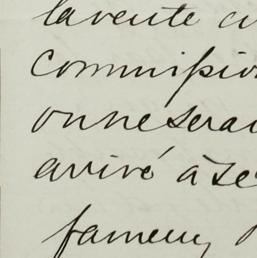 la vente
commission
on ne serai
arrivé à se
fameux